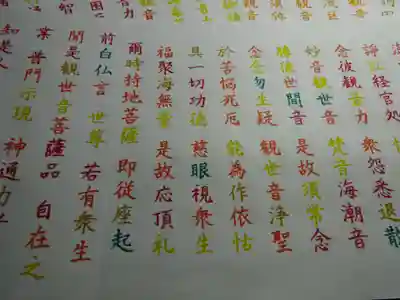 諍訟経官処
念彼観音力 衆怨悉退散
妙音観世音 梵音海潮音
勝彼世間音 是故須常念
念念勿生疑 観世音浄聖
於苦悩死厄 能為作依怙
具一切功徳 慈眼視衆生
福聚海無量 是故応頂礼
爾時持地菩薩 即従座起
前白仏言 世尊 若有衆生
聞是観世音菩薩品 自在之
業 普門示現 神通力者
知是人